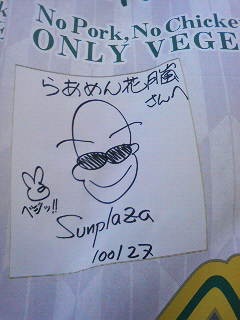 No Pork, No Chicke
ONLY VEGE
らあめん花月嵐
さんへ
ベジッ!!
Sunplaza
100127